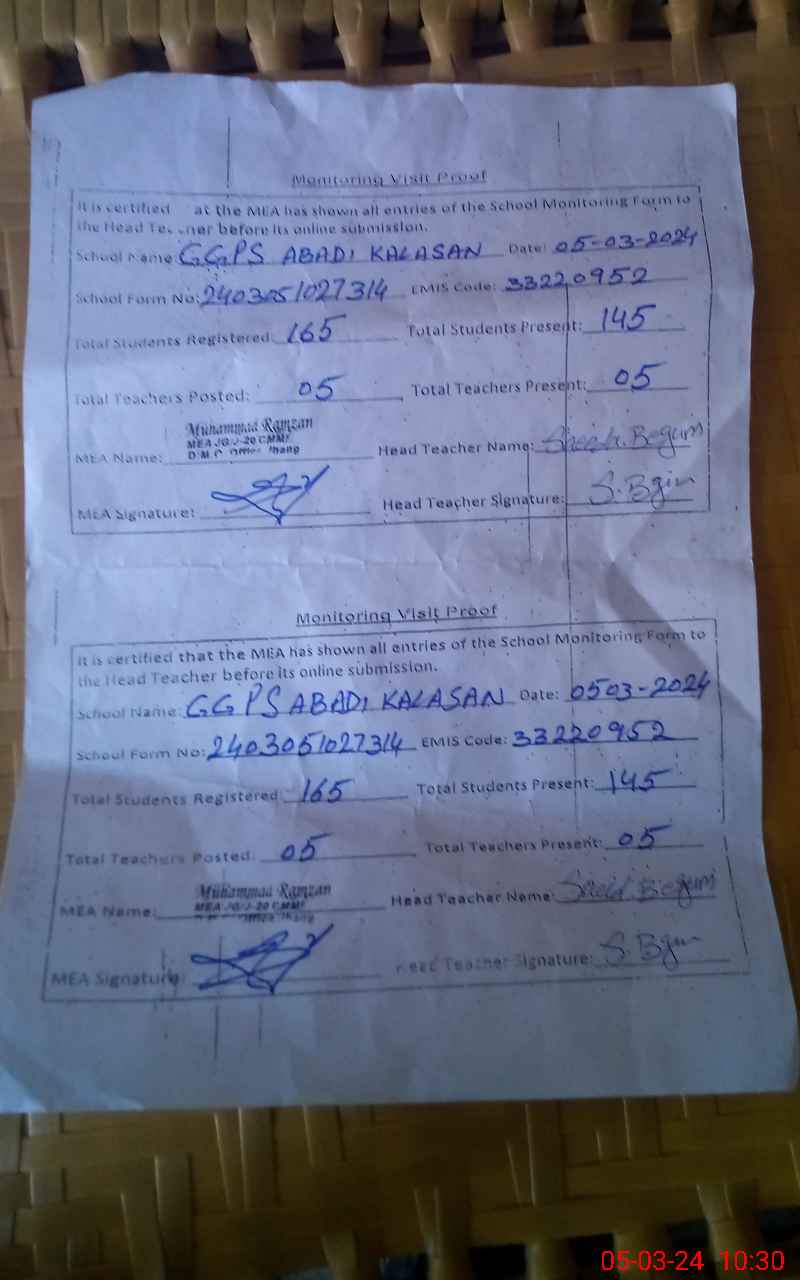 Monitoring Visit Proof
It is certified at the MEA has shown all entries of the School Monitoring Form to
the Head Teacher before its online submission.
School Name: GGPS ABADI KALASAN Date: 05-03-2024
School Form No: 2403051027314 EMIS Code: 33220952
Total Students Registered: 165 Total Students Present: 145
Total Teachers Posted: 05 Total Teachers Present: 05
Muhammad Ramzan
MEA Name: Head Teacher Name: Begum
MEA Signature: Head Teacher Signature:
Monitoring Visit Proof
It is certified that the MEA has shown all entries of the School Monitoring Form to
the Head Teacher before its online submission.
School Name: GGPS ABADI KALASAN Date: 0503-2024
School Form No: 2403051027314 EMIS Code: 33220952
Total Students Registered: 165 Total Students Present: 145
Total Teachers Posted: 05 Total Teachers Present: 05
Muhammad Ramzan
MEA Name: Head Teacher Name: Begum
MEA Signature: Head Teacher Signature:
05-03-24 10:30